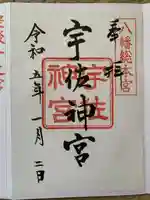 八幡総本宮
奉拝
宇佐神宮
宇佐神宮
令和五年一月二日